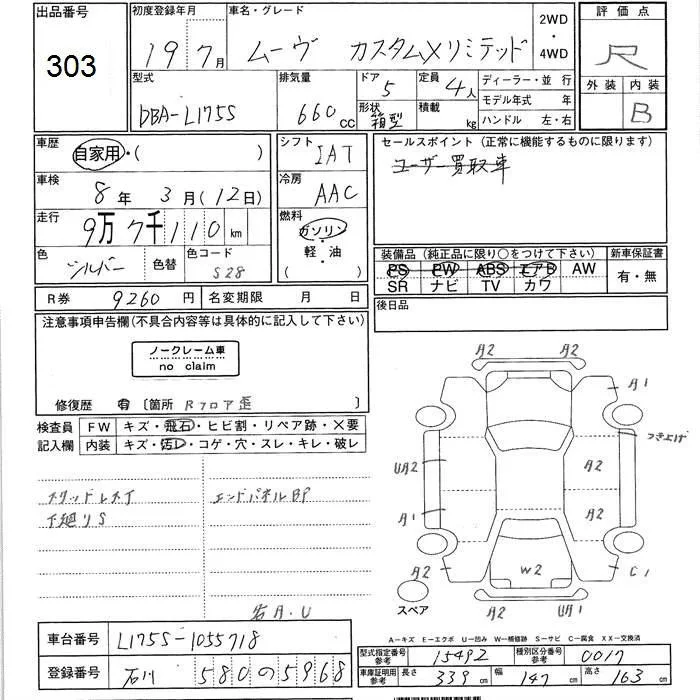 出品番号
303
初度登録年月
19年7月
車名・グレード
ムーヴ カスタムXリミテッド
2WD
・
4WD
評価点
R
外装 内装
B
型式
DBA-L175S
排気量
660 CC
ドア
5
形状
箱型
定員
4人
積載
kg
ディーラー・並 行
モデル年式 年
ハンドル 左・右
車歴
自家用・( )
車検
8年 3月(12日)
走行
9万7千110 km
色
シルバー
色替
色コード
S28
シフト
IAT
冷房
AAC
燃料
ガソリン
・
軽・油
( )
セールスポイント(正常に機能するものに限ります)
ユーザー買取車
装備品(純正品に限り○をつけて下さい)
PS PW ABS エアB AW
SR ナビ TV カワ
新車保証書
有・無
R券 9260円
名変期限 月 日
後日品
注意事項申告欄(不具合内容等は具体的に記入して下さい)
ノークレーム車
no claim
修復歴 有 〔箇所 Rフロア歪 〕
検査員
記入欄
FW キズ・飛石・ヒビ割・リペア跡・X要
内装 キズ・汚レ・コゲ・穴・スレ・キレ・破レ
下廻りS
エンドパネルBP
A2 A2
A1
つきよげ
UA2
A2
A1
A2
A2
W2
C1
A2
UA1
スペア
A-キズ E-エクボ U-凹み W-補修跡 S-サビ C-腐食 XX-交換済
車台番号
L175S-1055718
登録番号
石川 580の5968
型式指定番号
参考
15492
種別区分番号
参考
0017
車庫証明用
参考
長さ 339cm
幅 147cm
高さ 163cm